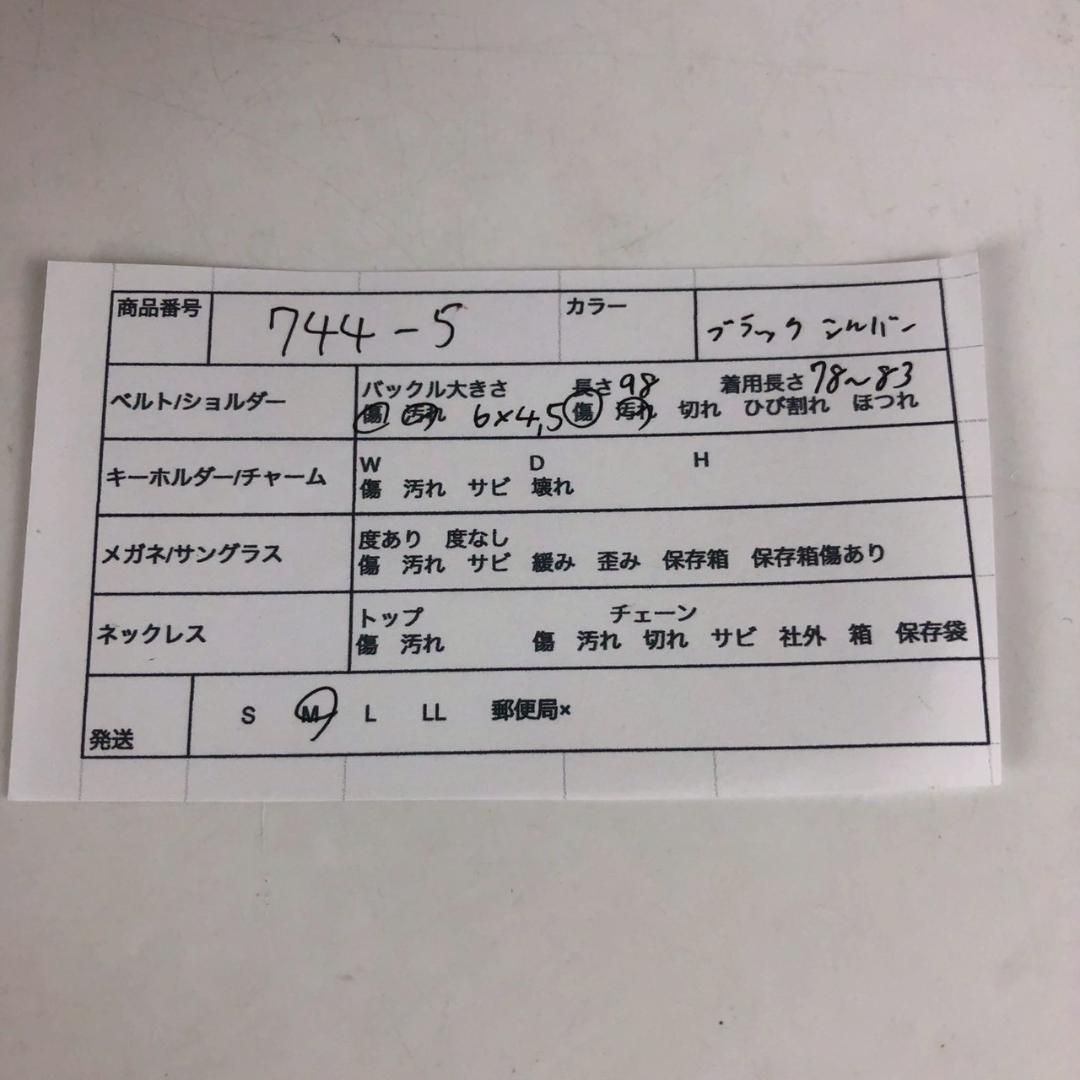 商品番号 744-5 カラー ブラック シルバー
ベルト/ショルダー バックル大きさ 長さ 98 着用長さ 78~83
傷 汚れ 6×4,5 傷 汚れ 切れ ひび割れ ほつれ
キーホルダー/チャーム W D H
傷 汚れ サビ 壊れ
メガネ/サングラス 度あり 度なし
傷 汚れ サビ 緩み 歪み 保存箱 保存箱傷あり
ネックレス トップ チェーン
傷 汚れ 傷 汚れ 切れ サビ 社外 箱 保存袋
発送 S M L LL 郵便局×